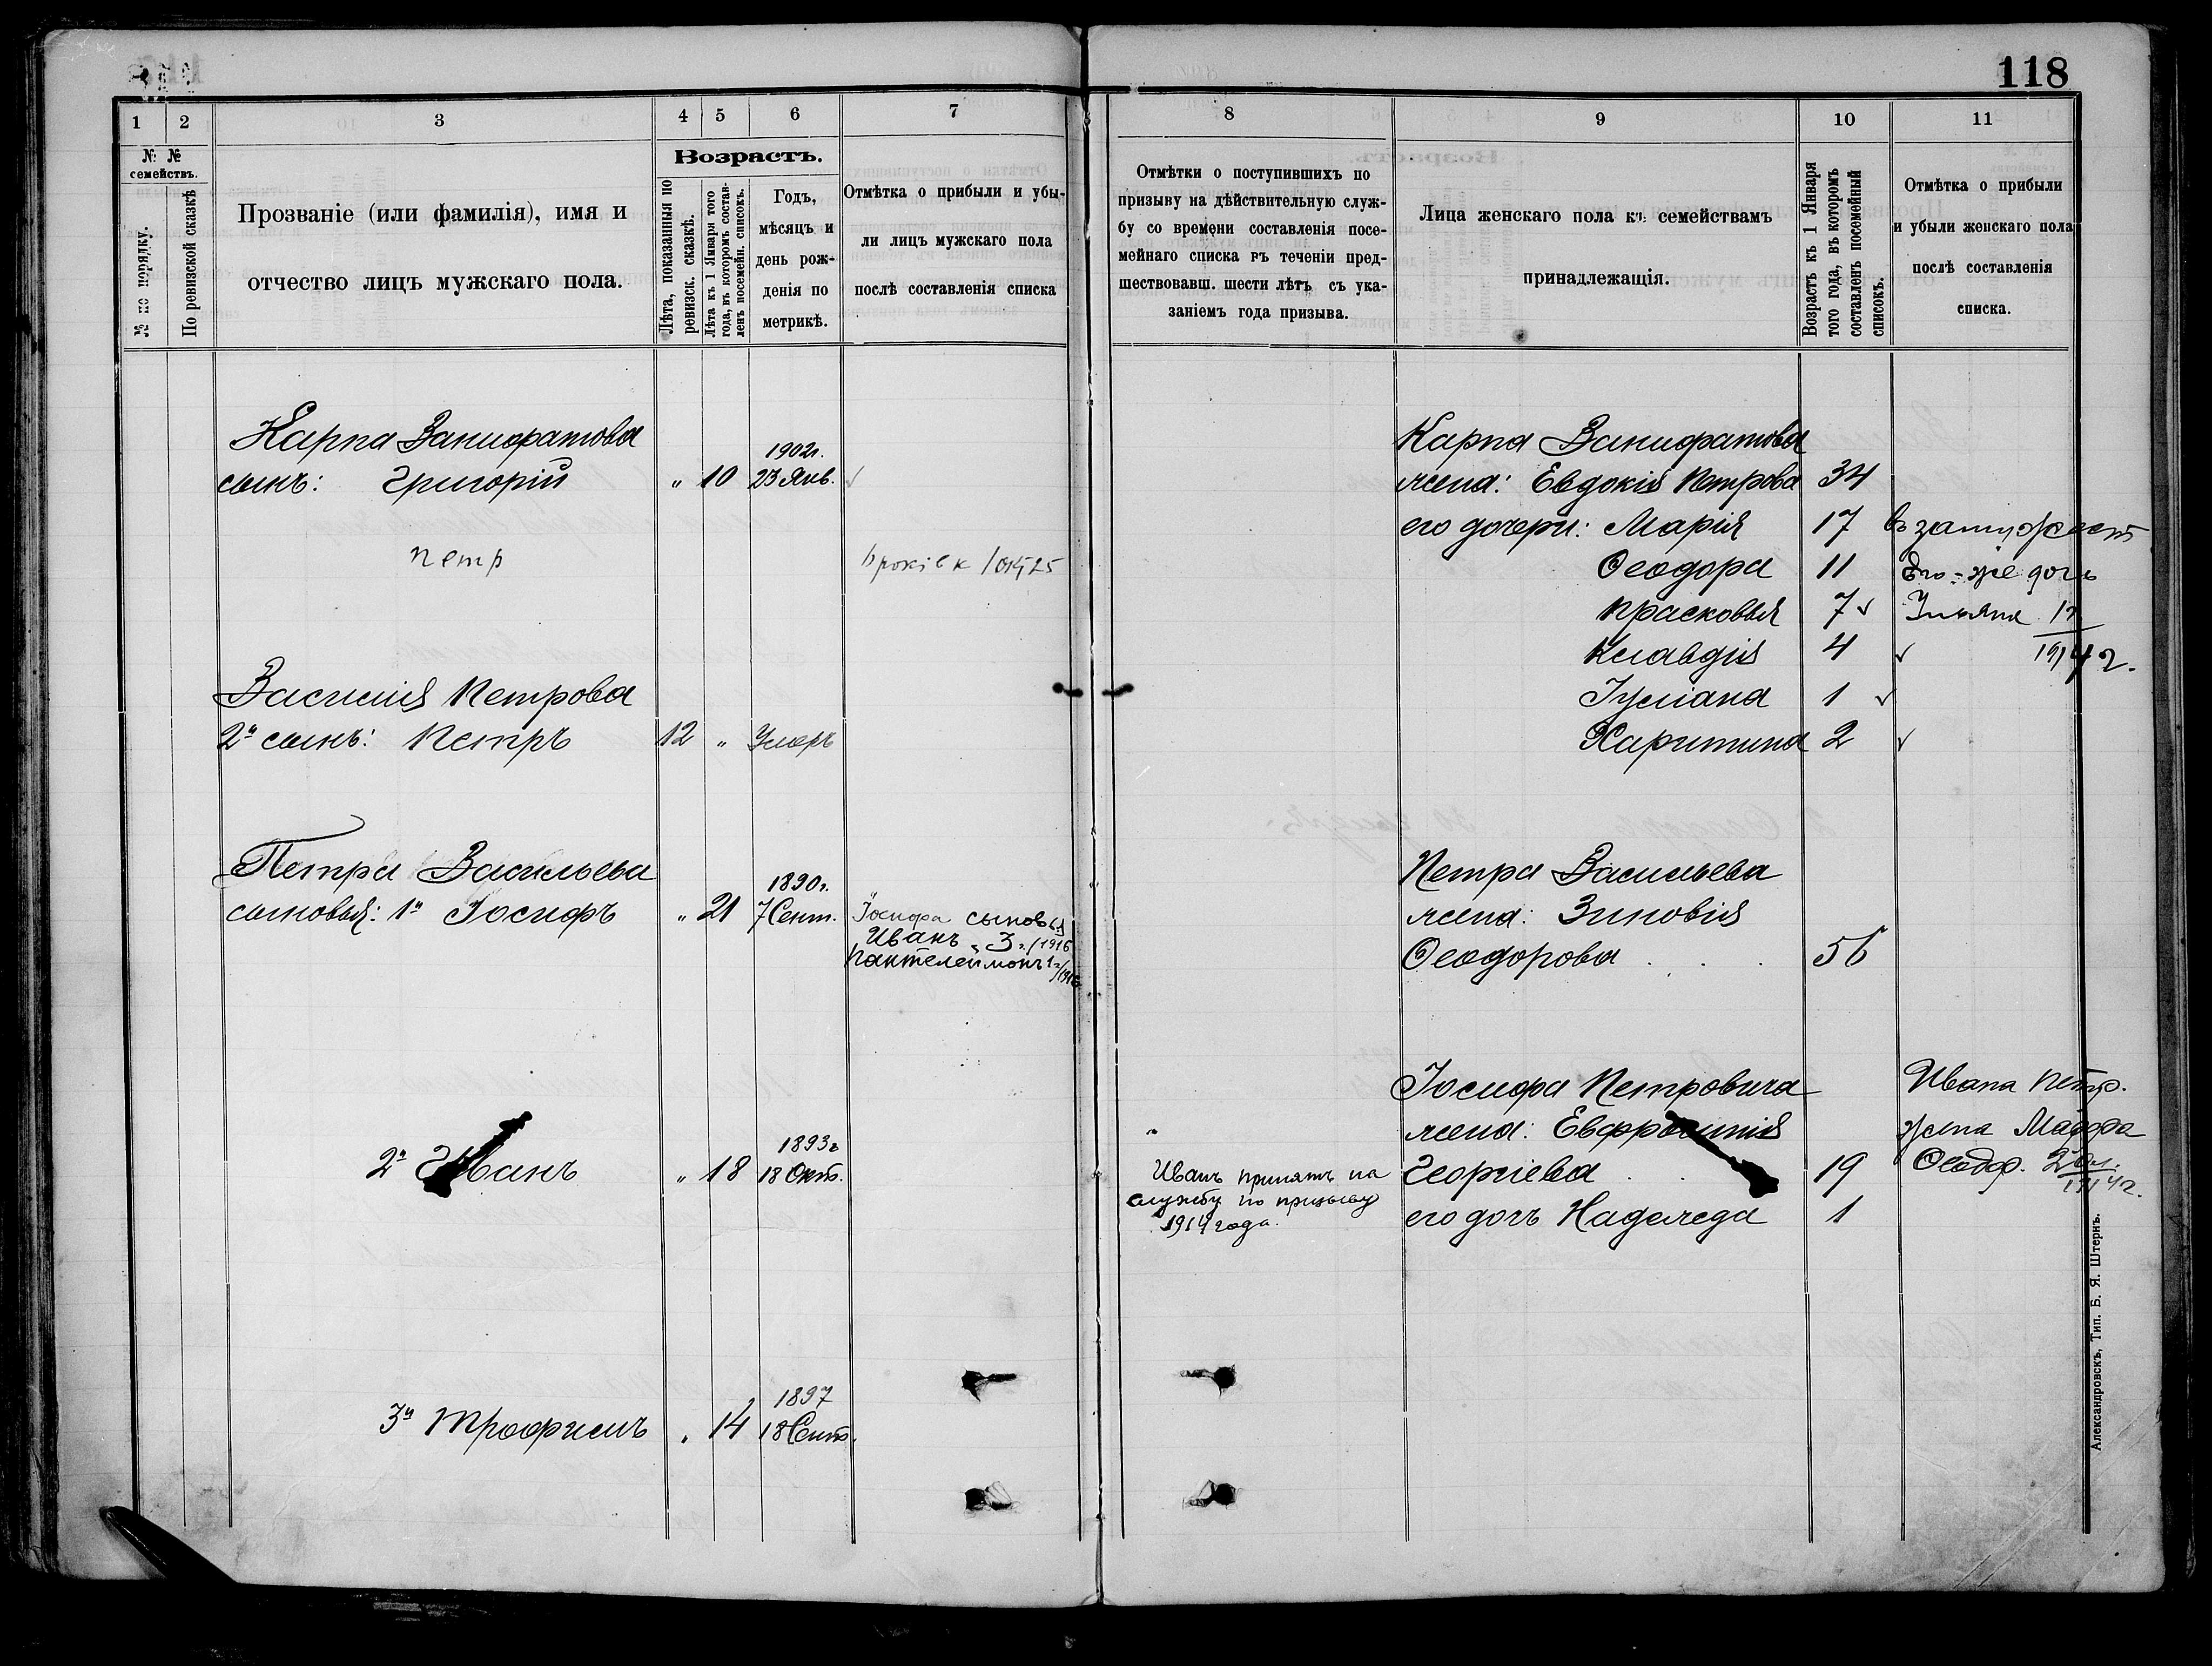 118
1 2 3 4 5 6 7
№ №
семействъ.
№ по порядку.
По ревизской сказкѣ
Прозваніе (или фамилія), имя и
отчество лицъ мужскаго пола.
Возрастъ.
Лѣта, показанныя по
ревизск. сказкѣ.
Лѣта къ 1 Января того
года, въ которомъ состав-
ленъ посемейн. списокъ.
Годъ,
мѣсяцъ и
день рож-
денія по
метрикѣ.
Отмѣтка о прибыли и убы-
ли лицъ мужскаго пола
послѣ составленія списка
Карпа Ванифатова
1902г.
сынъ: Григорій " 10 23 Янв.
Петр
Василія Петрова
2й сынъ: Петръ 12 " Умеръ
Петра Васильева
1890г.
сыновья: 1й Іосифъ " 21 7 Сент.
Іосифа сыновья
Иванъ 3 г./1916
Пантелеймонъ 1 г/1916
1893г
2й Иванъ " 18 18 Окт.
1897
3й Трофимъ " 14 18 Сент.
8 9 10 11
Отмѣтки о поступившихъ по
призыву на дѣйствительную служ-
бу со времени составленія посе-
мейнаго списка въ теченіи пред-
шествовавш. шести лѣтъ съ ука-
заніемъ года призыва.
Лица женскаго пола къ семействамъ
принадлежащія.
Возрастъ къ 1 Января
того года, въ которомъ
составленъ посемейный
списокъ.
Отмѣтка о прибыли
и убыли женскаго пола
послѣ составленія
списка.
Карпа Ванифатова
жена: Евдокія Петрова 34
его дочери: Марія 17 въ замужест
Ѳеодора 11 Его-же дочь
Прасковья 7
Клавдія 4
Іуліана 1
Харитина 2
Петра Васильева
жена: Зиновія
Ѳеодорова 56
Іосифа Петровича
жена: Евфросинія
Георгіева 19
его дочь Надежда 1
Иванъ принятъ на
службу по призыву
1914 года.
Ивана Петр.
жена Марфа
Ѳеодор.
Александровскъ, Тип. Б. Я. Штернъ.